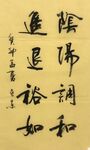 陰陽調和
進退裕如
癸卯